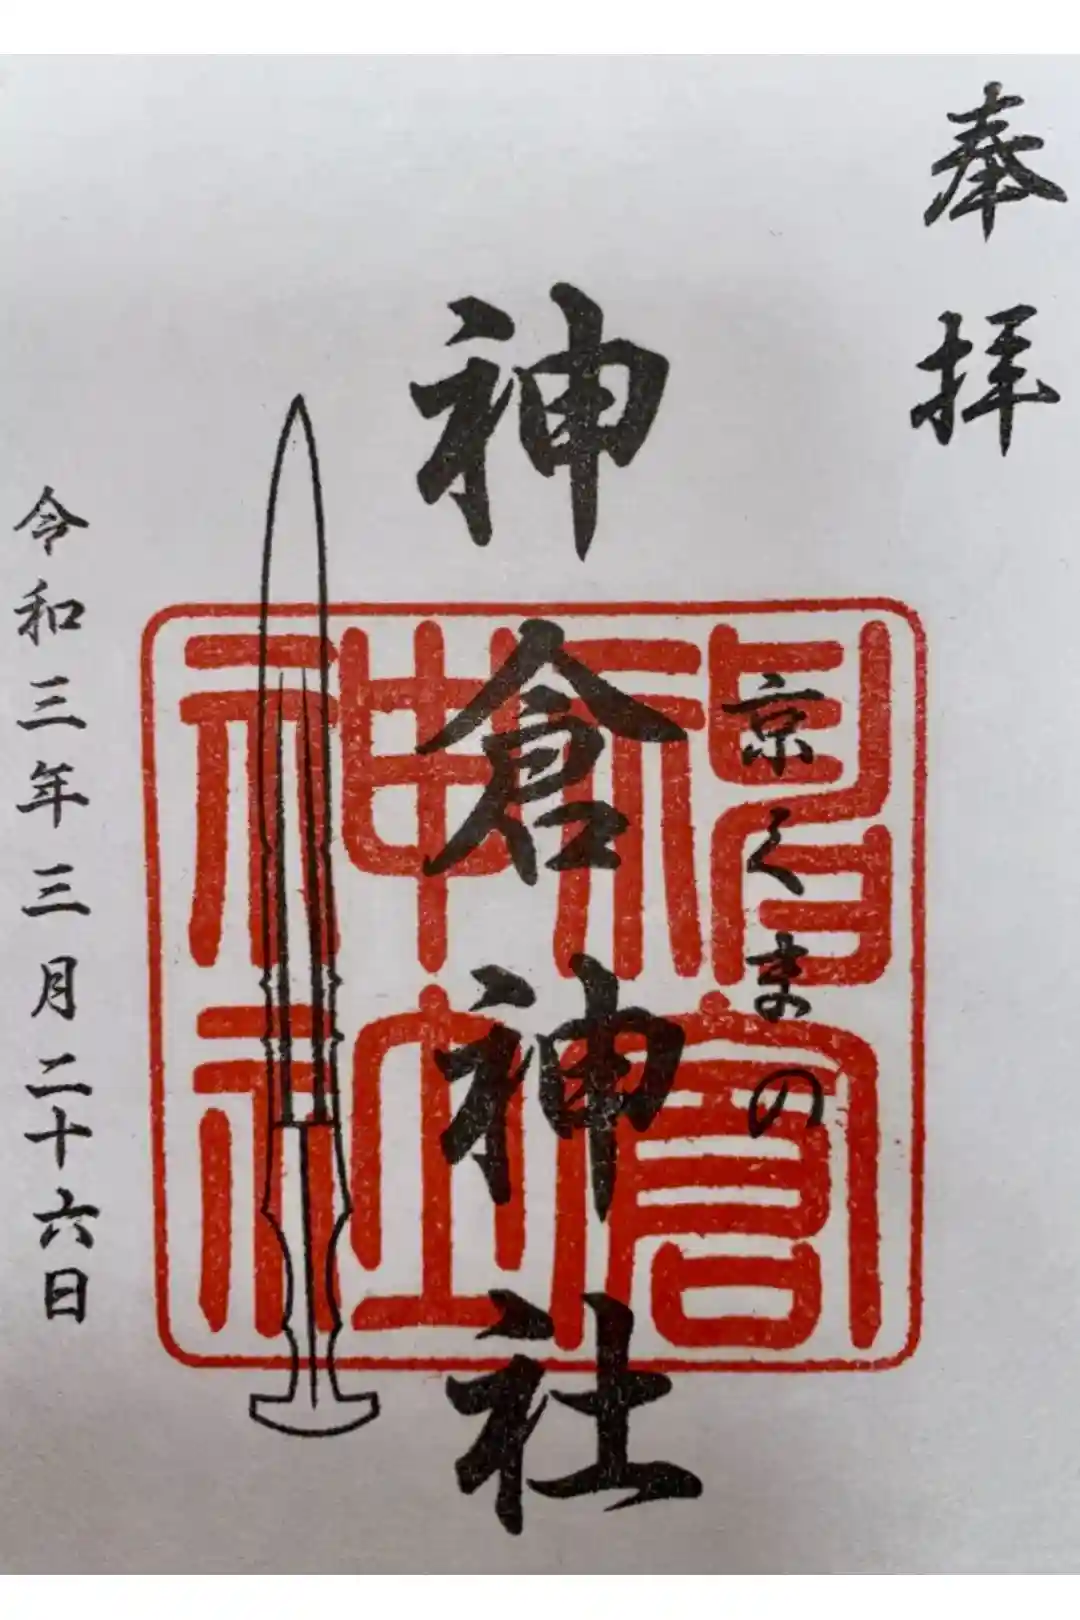 奉拝
京くまの
神倉神社
令和三年三月二十六日